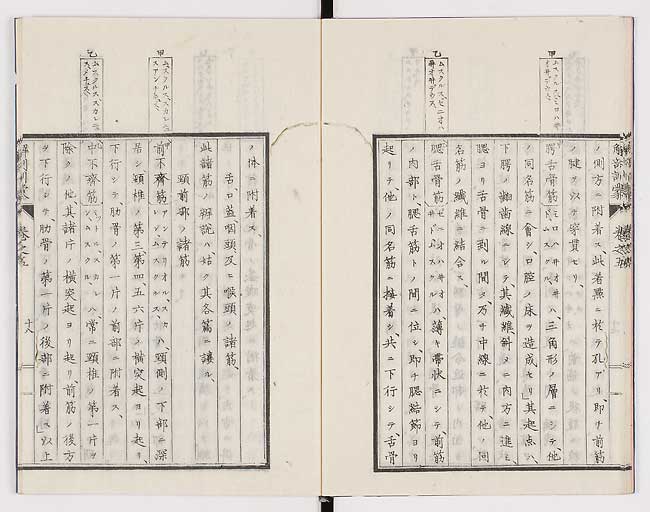 甲
ムスクルス、ミロハ
乙
ムスクルス、ゼニオハ
ノ側方ニ附着ス、此着點ニ於テ孔アリ、即チ前筋
ノ腱ヲ以テ穿貫セリ、
腭舌骨筋 ハ三角形ノ層ニシテ他
ノ同名筋ニ會シ、口腔ノ床ヲ造成セリ、其起点ハ、
下腭齒線ニシテ其纎維斜メニ内方ニ進ミ、
腮ヨリ舌骨ニ到ル間ヲ乃サ中線ニ於テ他ノ同
名筋ノ纎維ニ結合ス、
腮舌骨筋 ハ薄キ帶状ニシテ、前筋
ノ内部ト、腮舌筋トノ間ニ位シ、即チ腮結節ヨリ
起リテ、他ノ同名筋ニ接着シ、共ニ下行シテ、舌骨
解剖訓蒙
巻之五
甲
ムスクルス、スカレ
乙
ムスクルス、スカレ
ノ体ニ附着ス、
舌口蓋咽頭及ヒ喉頭ノ諸筋、
此諸筋ノ辨説ハ姑ク其各篇ニ讓ル、
頸前部ノ諸筋
前不齊筋 ハ頸側ノ下部ニ深
居シ頸椎ノ第三、第四、五六片ノ横突起ヨリ起リ、
下行シテ、肋骨ノ第一片ノ前部ニ附着ス、
中不齊筋 ハ常ニ頸椎ノ第一片ヲ
除クノ他、其諸片ノ横突起ヨリ起リ、前筋ノ後方
ヲ下行シテ、肋骨ノ第一片ノ後部ニ附着ス、以上
解剖訓蒙
巻之五
十八